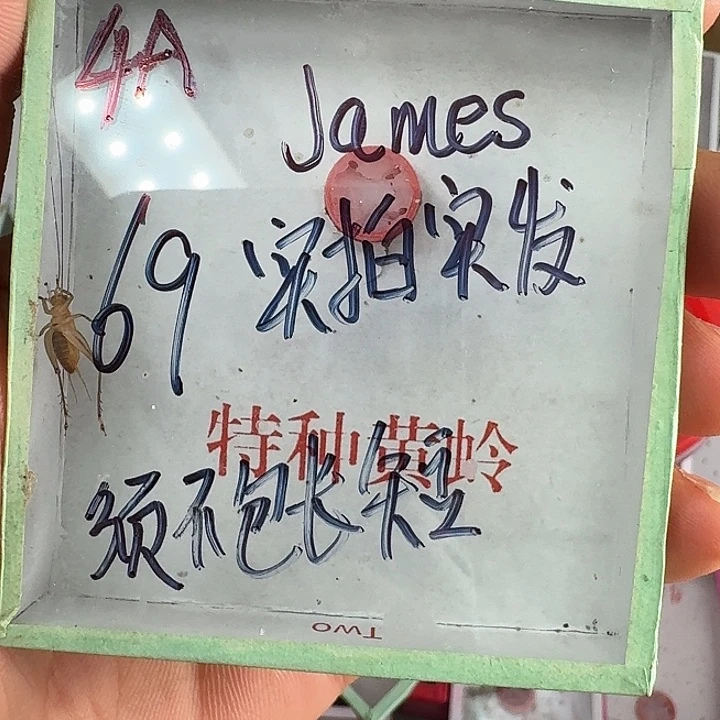 4A
James
69 实拍实发
特种黄蛉
须不包长短
TWO